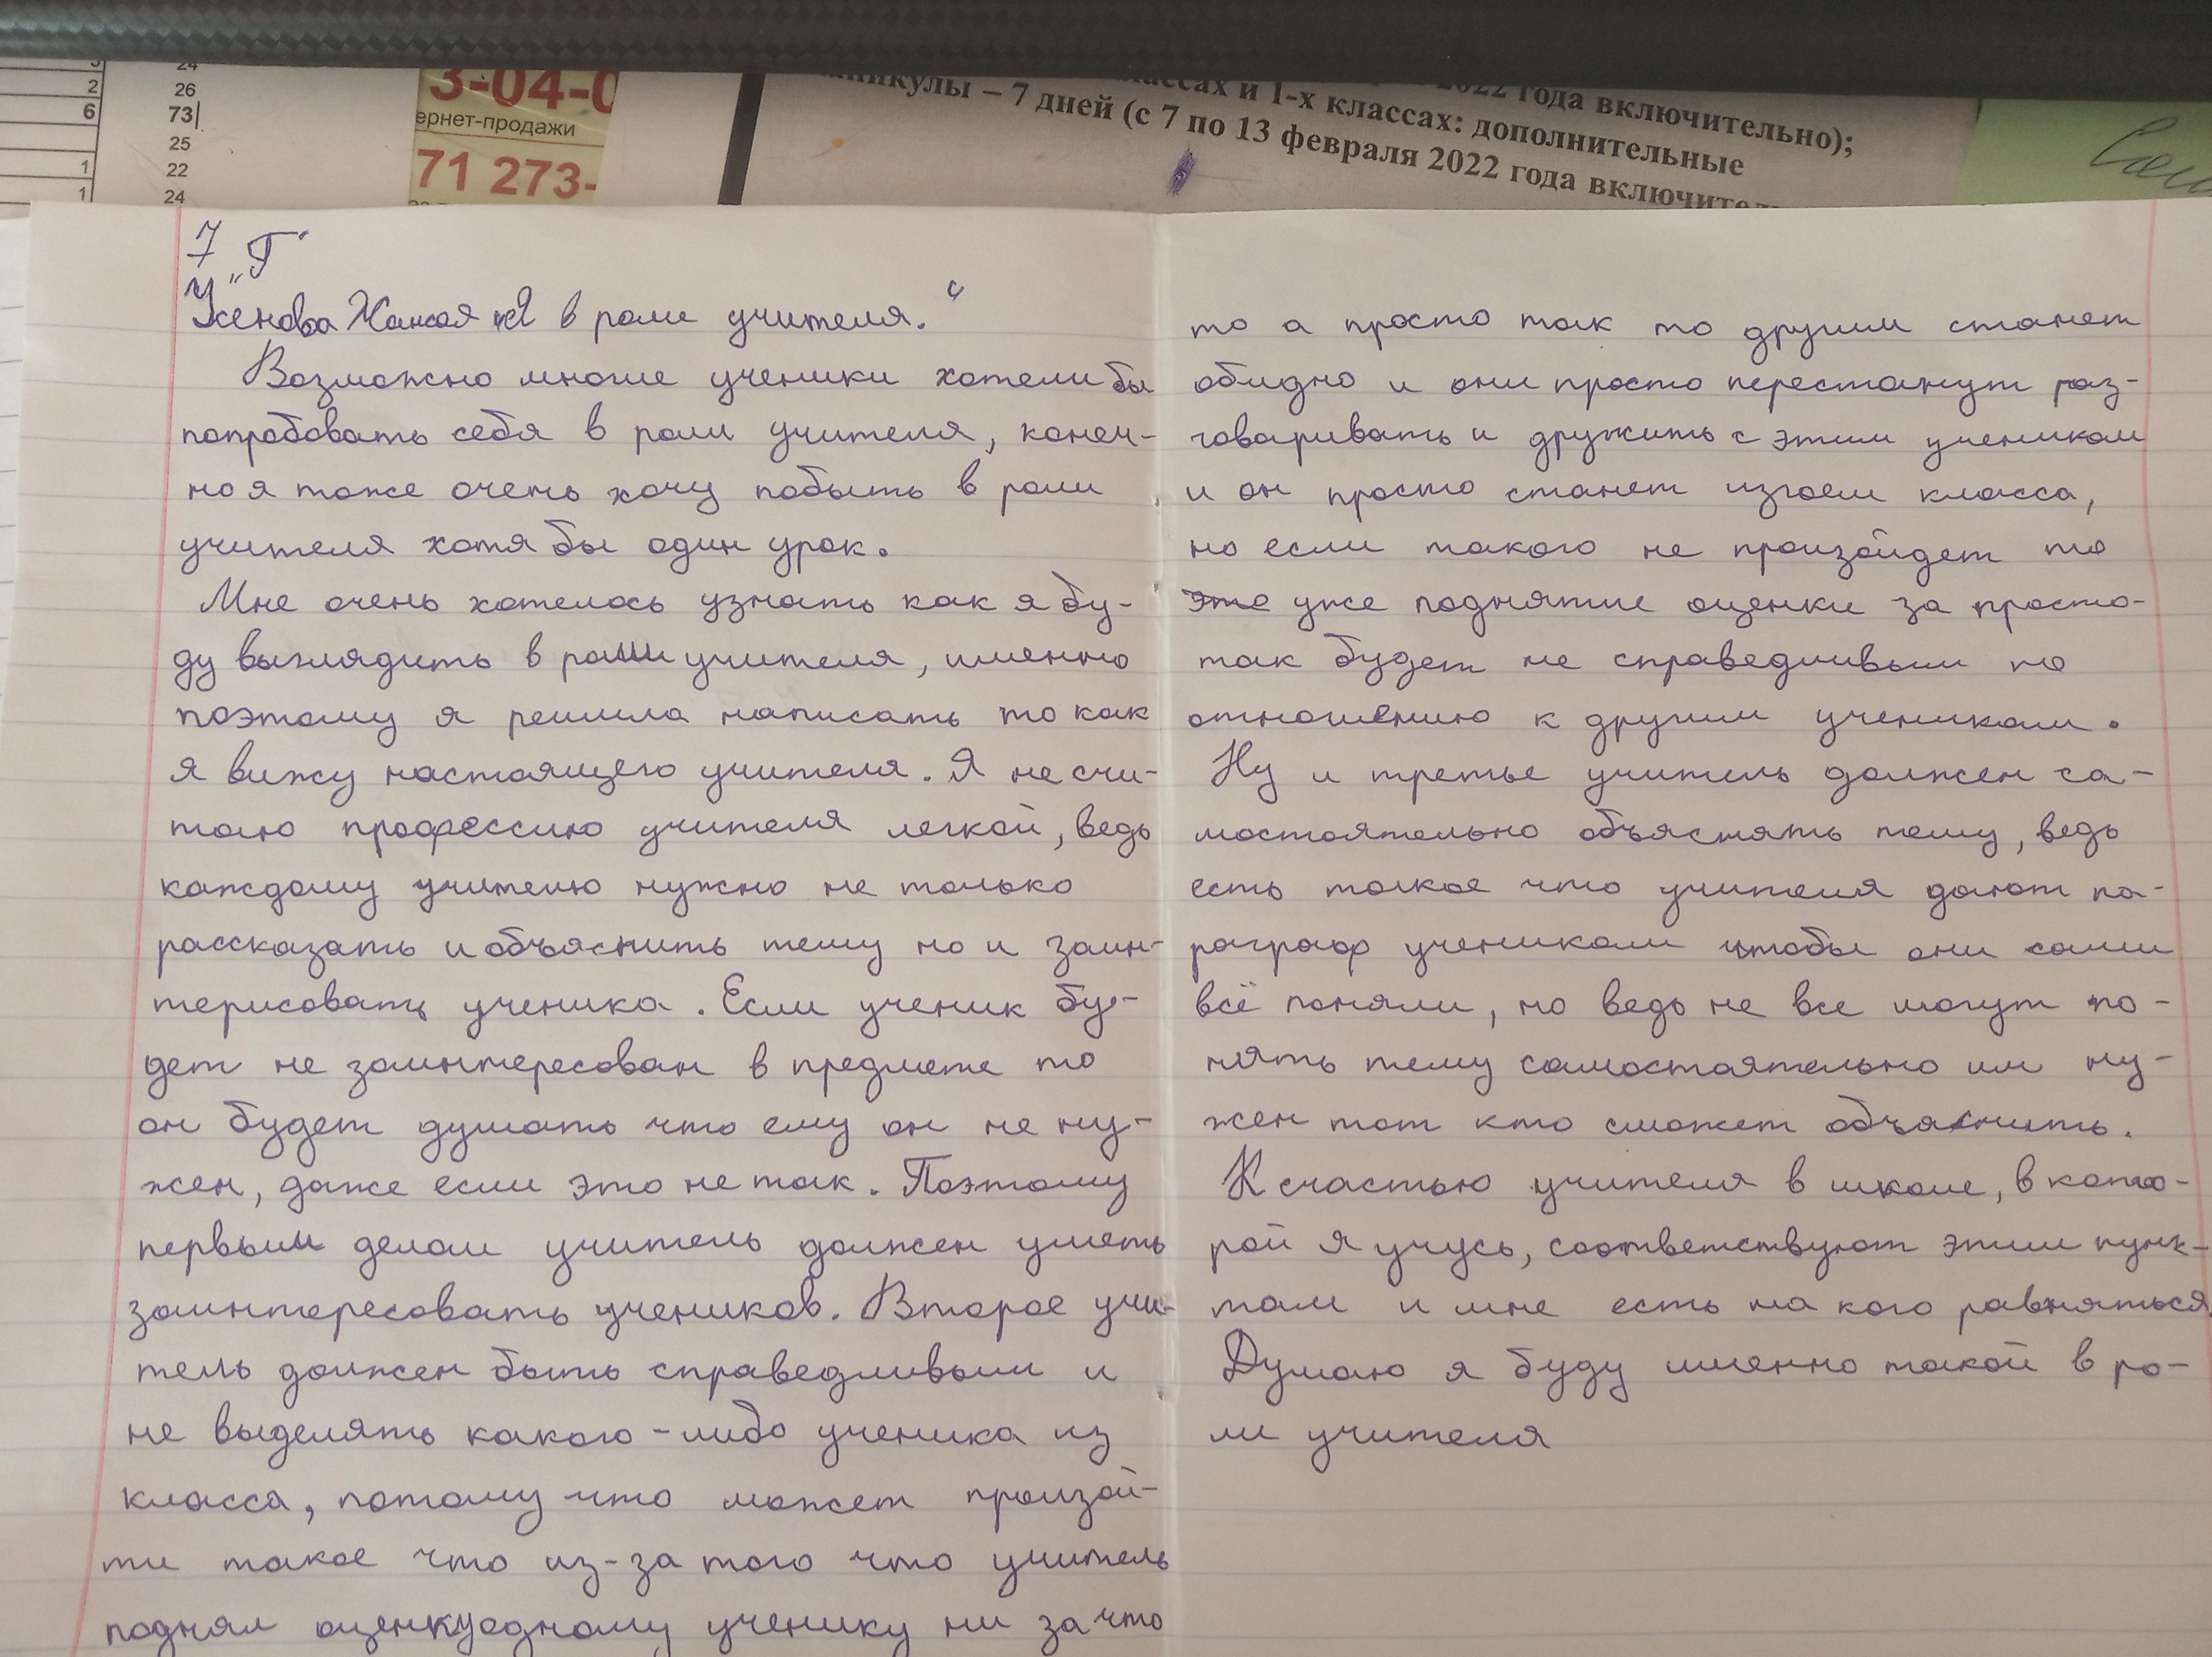 24
2
26
6
73
25
1
22
1
24
3-04-0
ернет-продажи
71 273-
2022 года включительно);
ассах и 1-х классах: дополнительные
никулы – 7 дней (с 7 по 13 февраля 2022 года включитель
7 "Г"
Усенова "Я в роли учителя."
Возможно многие ученики хотели бы
попробовать себя в роли учителя, конеч-
но я тоже очень хочу побыть в роли
учителя хотя бы один урок.
Мне очень хотелось узнать как я бу-
ду выглядить в роли учителя, именно
поэтому я решила написать то как
я вижу настоящего учителя. Я не счи-
таю профессию учителя легкой, ведь
каждому учителю нужно не только
рассказать и объяснить тему но и заин-
терисовать ученика. Если ученик бу-
дет не заинтересован в предмете то
он будет думать что ему он не ну-
жен, даже если это не так. Поэтому
первым делом учитель должен уметь
заинтересовать учеников. Второе учи-
тель должен быть справедливым и
не выделять какого-либо ученика из
класса, потому что может произой-
ти такое что из-за того что учитель
поднял оценку одному ученику ни за что
то а просто так то другим станет
обидно и они просто перестанут раз-
говаривать и дружить с этим учеником
и он просто станет изгоем класса,
но если такого не произойдет то
это уже поднятие оценки за просто-
так будет не справедливым по
отношению к другим ученикам.
Ну и третье учитель должен са-
мостоятельно объяснять тему, ведь
есть такое что учителя дают па-
раграф ученикам чтобы они сами
всё поняли, но ведь не все могут по-
нять тему самостоятельно им ну-
жен тот кто сможет объяснить.
К счастью учителя в школе, в кото-
рой я учусь, соответствуют этим пунк-
там и мне есть на кого равняться.
Думаю я буду именно такой в ро-
ли учителя